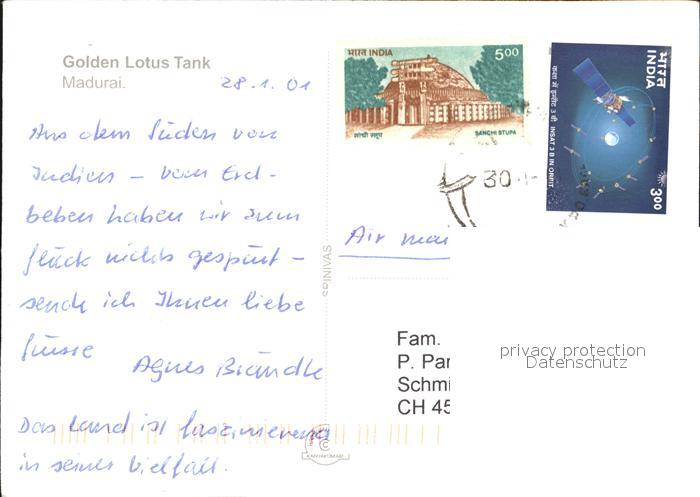 Golden Lotus Tank
Madurai.
28.1.01
Aus dem Süden von
Indien – vom Erd-
beben haben wir zum
Glück nichts gespürt –
sende ich Ihnen liebe
Grüsse
Agnes Brändle
Das Land ist faszinierend
in seiner Vielfalt.
भारत INDIA
5.00
सांची स्तूप
SANCHI STUPA
भारत
INDIA
INSAT 3 B IN ORBIT
3.00
30.1
Air mai
SRINIVAS
Fam.
P. Par
Schmi
CH 45
privacy protection
Datenschutz
KANYAKUMARI